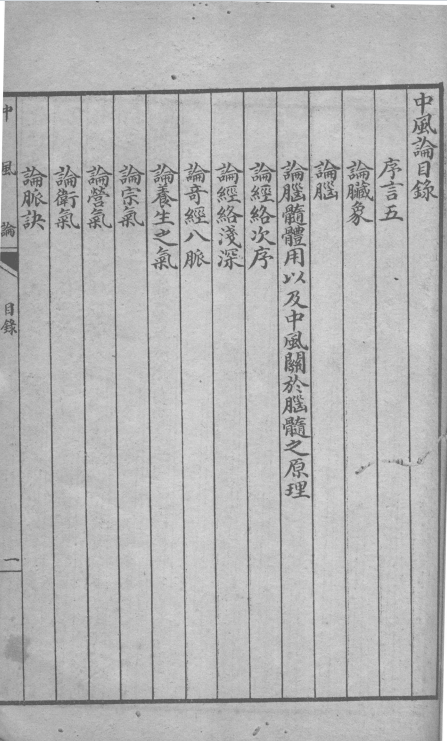 中風論目錄
序言五
論臟象
論腦
論腦髓體用以及中風關於腦髓之原理
論經絡次序
論經絡淺深
論奇經八脈
論養生之氣
論宗氣
論營氣
論衛氣
論脈訣
中風論
目錄
一